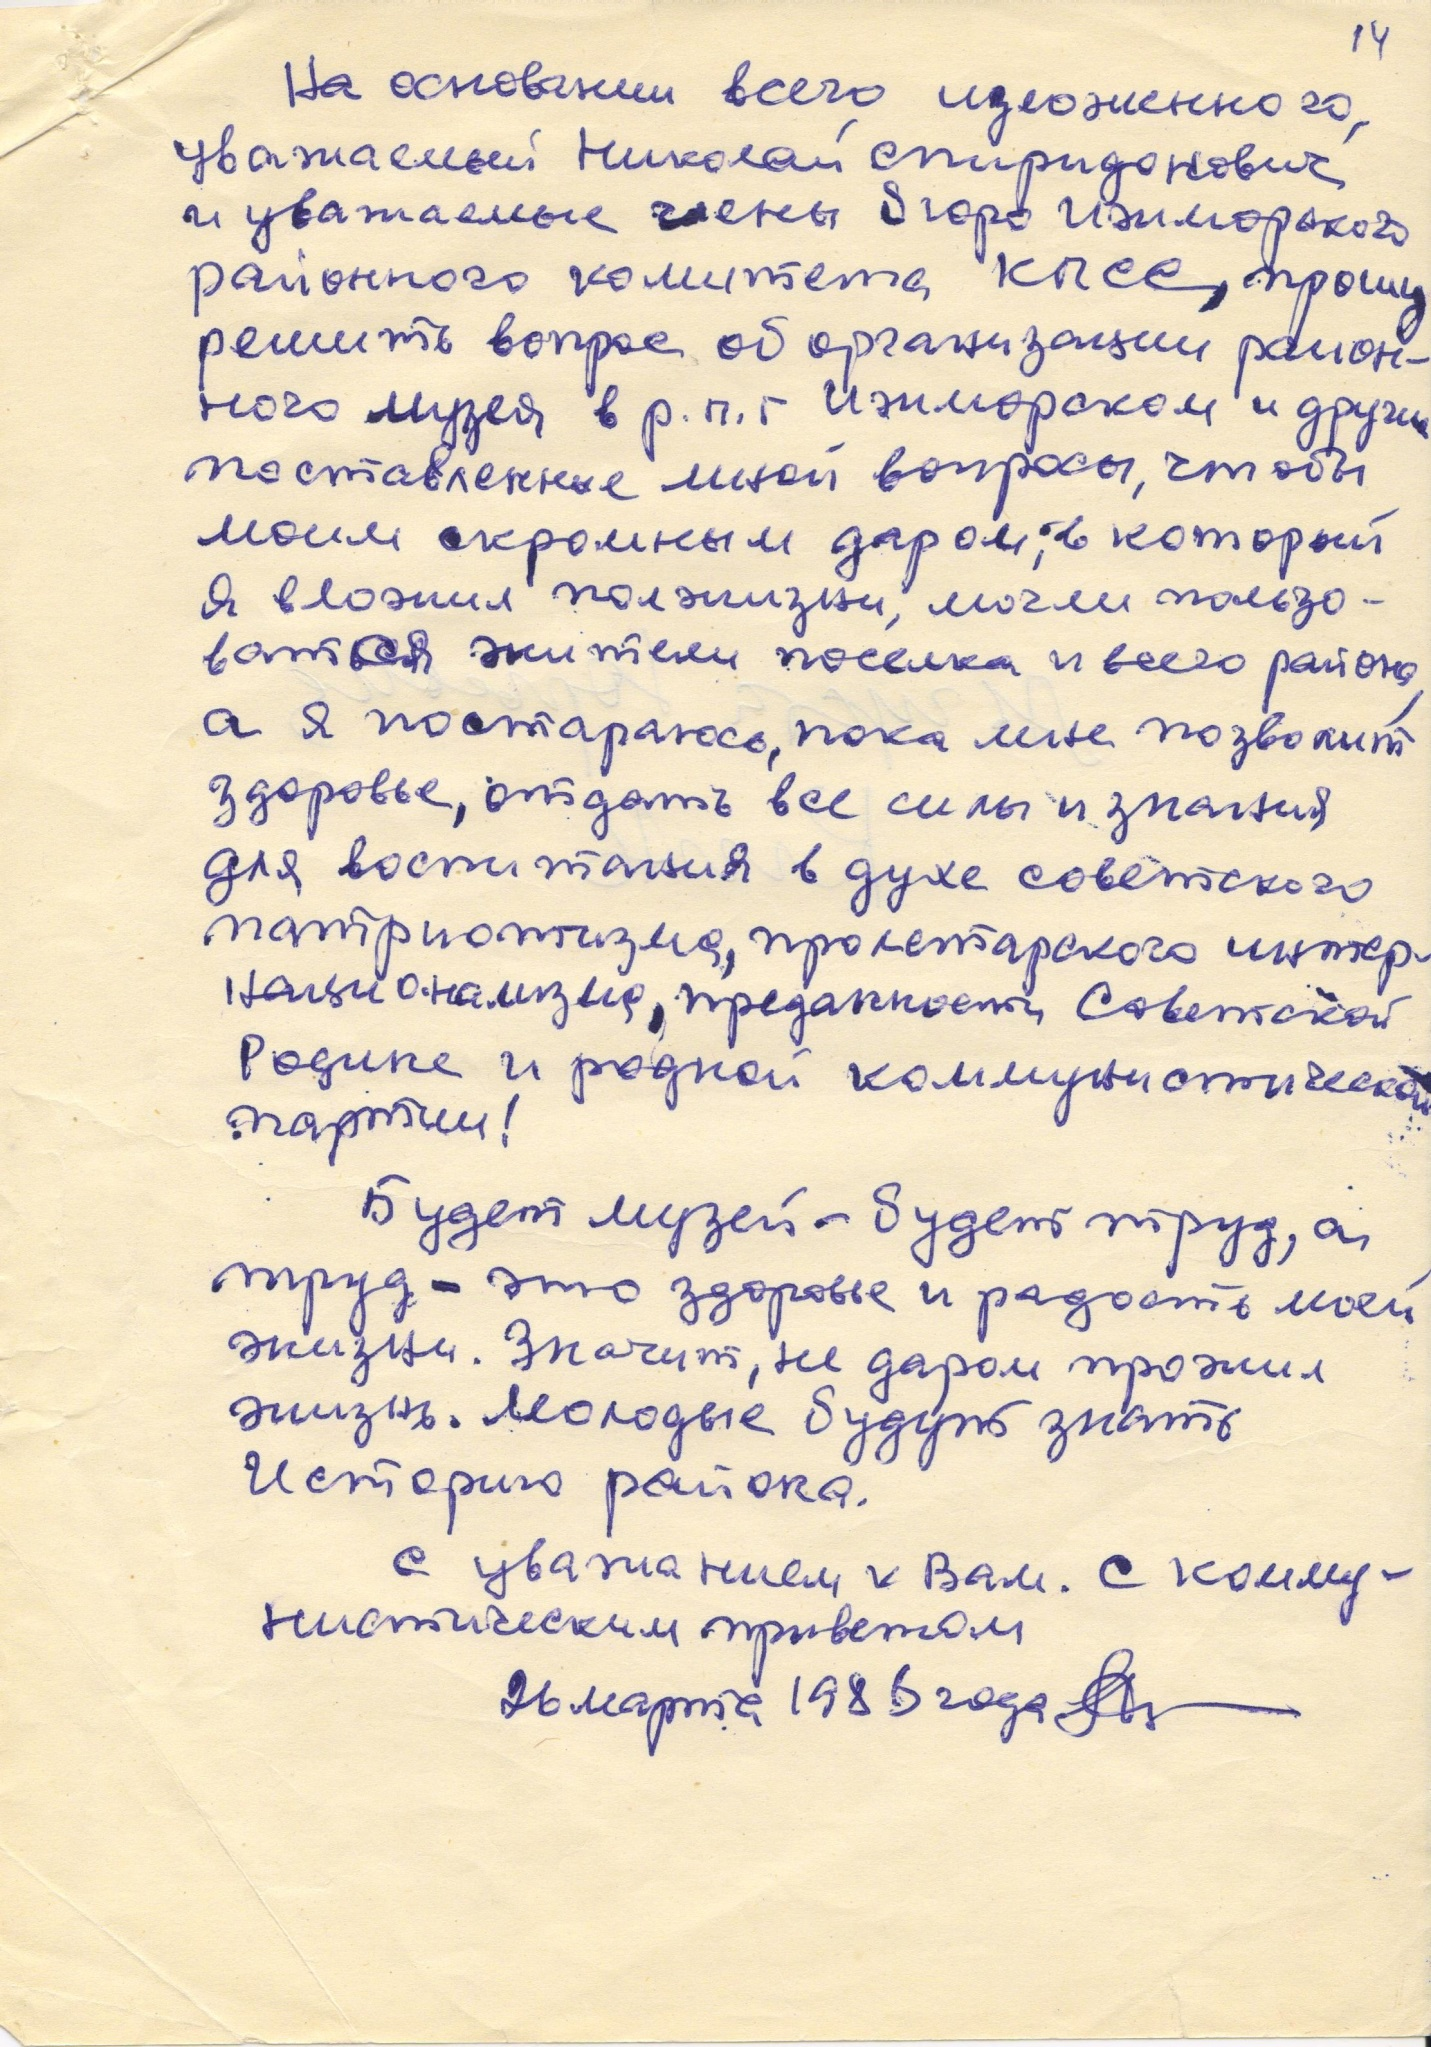 14
На основании всего изложенного,
уважаемый Николай Спиридонович
и уважаемые члены бюро Ижморского
районного комитета КПСС, прошу
решить вопрос об организации район-
ного музея в р.п.г Ижморском и другие
поставленные мной вопросы, чтобы
моим скромным даром, в который
я вложил полжизни, могли пользо-
ваться жители посёлка и всего района,
а я постараюсь, пока мне позволит
здоровье, отдать все силы и знания
для воспитания в духе советского
патриотизма, пролетарского интер-
национализма, преданности Советской
Родине и родной коммунистической
партии!
Будет музей - будет труд, а
труд - это здоровье и радость моей
жизни. Значит, не даром прожил
жизнь. Молодые будут знать
Историю района.
С уважением к Вам. С комму-
нистическим приветом
26 марта 1986 года